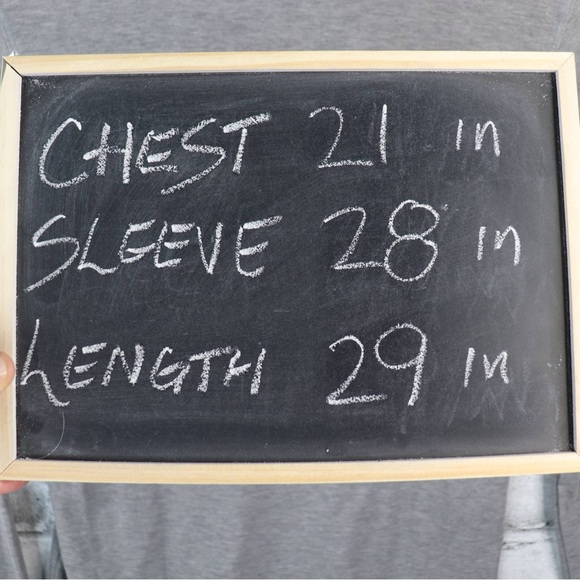 CHEST 21 in
SLEEVE 28 in
LENGTH 29 in